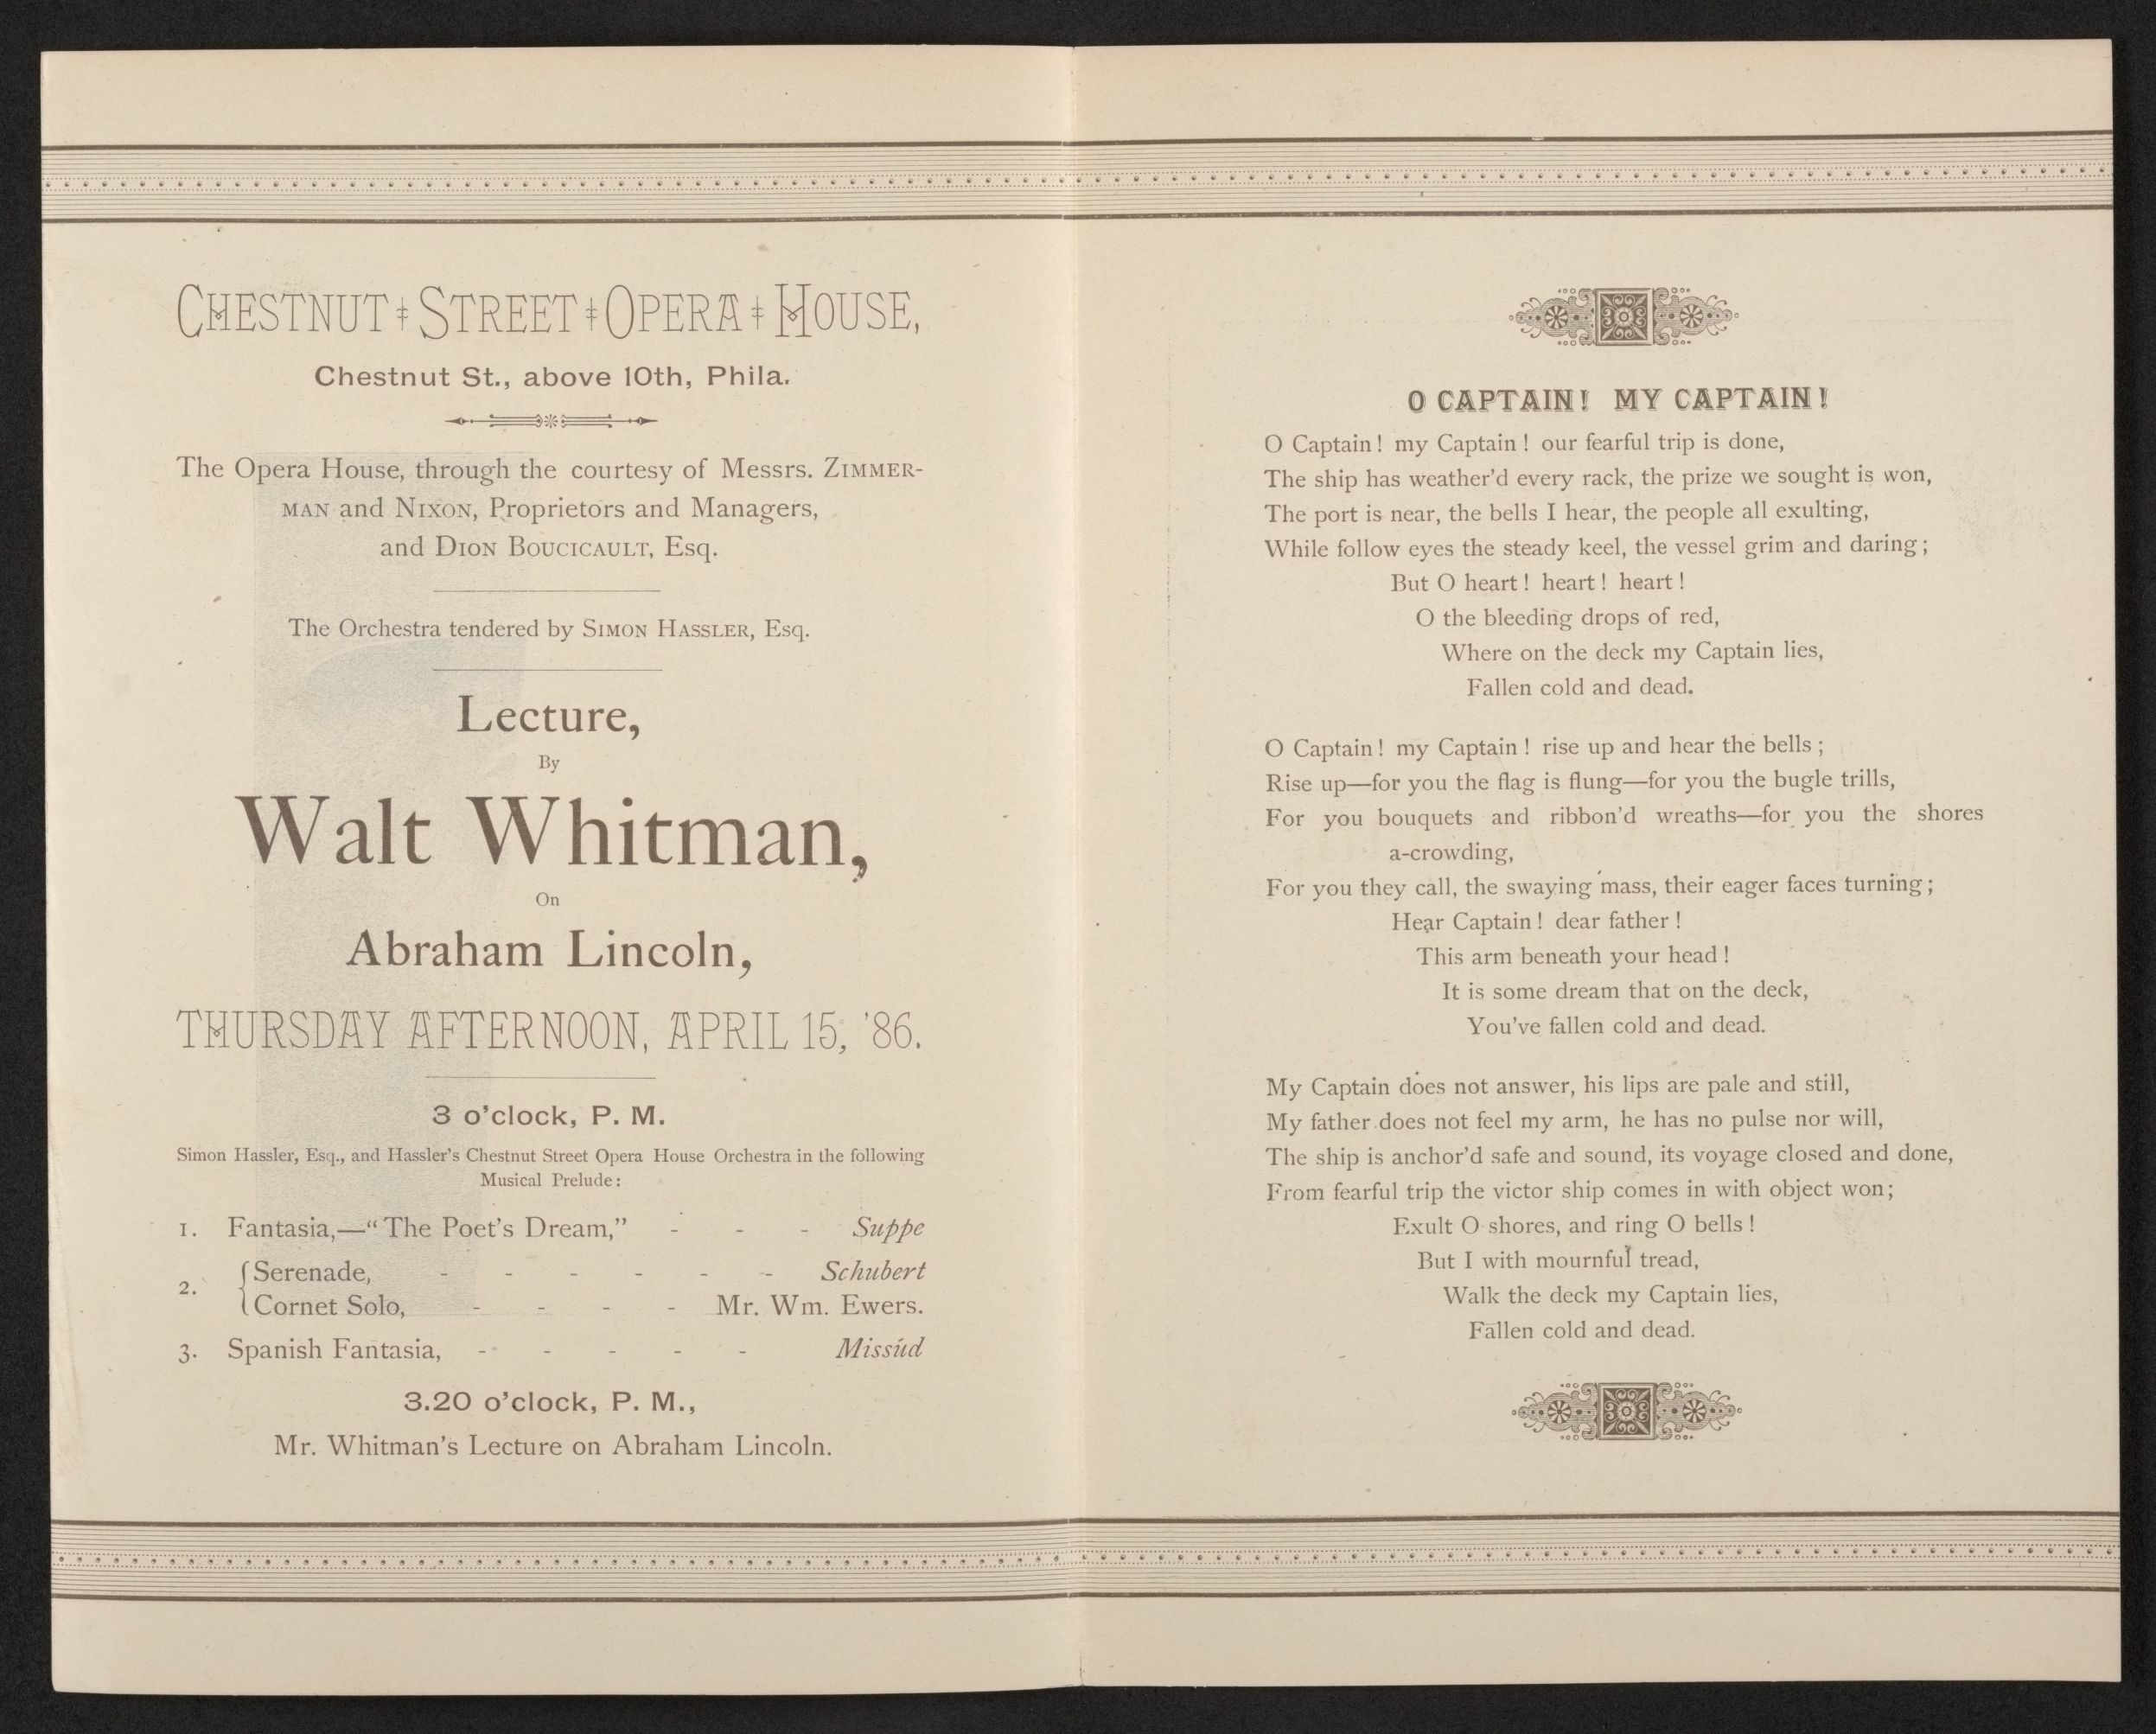 CHESTNUT STREET OPERA HOUSE,
Chestnut St., above 10th, Phila.
The Opera House, through the courtesy of Messrs. ZIMMER-
MAN and NIXON, Proprietors and Managers,
and DION BOUCICAULT, Esq.
The Orchestra tendered by SIMON HASSLER, Esq.
Lecture,
By
Walt Whitman,
On
Abraham Lincoln,
THURSDAY AFTERNOON, APRIL 15, '86.
3 o'clock, P. M.
Simon Hassler, Esq., and Hassler's Chestnut Street Opera House Orchestra in the following
Musical Prelude:
1. Fantasia,—"The Poet's Dream," - - - Suppe
2. { Serenade, - - - - - - Schubert
Cornet Solo, - - - - Mr. Wm. Ewers.
3. Spanish Fantasia, - - - - - Missúd
3.20 o'clock, P. M.,
Mr. Whitman's Lecture on Abraham Lincoln.
O CAPTAIN! MY CAPTAIN!
O Captain! my Captain! our fearful trip is done,
The ship has weather'd every rack, the prize we sought is won,
The port is near, the bells I hear, the people all exulting,
While follow eyes the steady keel, the vessel grim and daring;
But O heart! heart! heart!
O the bleeding drops of red,
Where on the deck my Captain lies,
Fallen cold and dead.
O Captain! my Captain! rise up and hear the bells;
Rise up—for you the flag is flung—for you the bugle trills,
For you bouquets and ribbon'd wreaths—for you the shores
a-crowding,
For you they call, the swaying mass, their eager faces turning;
Hear Captain! dear father!
This arm beneath your head!
It is some dream that on the deck,
You've fallen cold and dead.
My Captain does not answer, his lips are pale and still,
My father does not feel my arm, he has no pulse nor will,
The ship is anchor'd safe and sound, its voyage closed and done,
From fearful trip the victor ship comes in with object won;
Exult O shores, and ring O bells!
But I with mournful tread,
Walk the deck my Captain lies,
Fallen cold and dead.